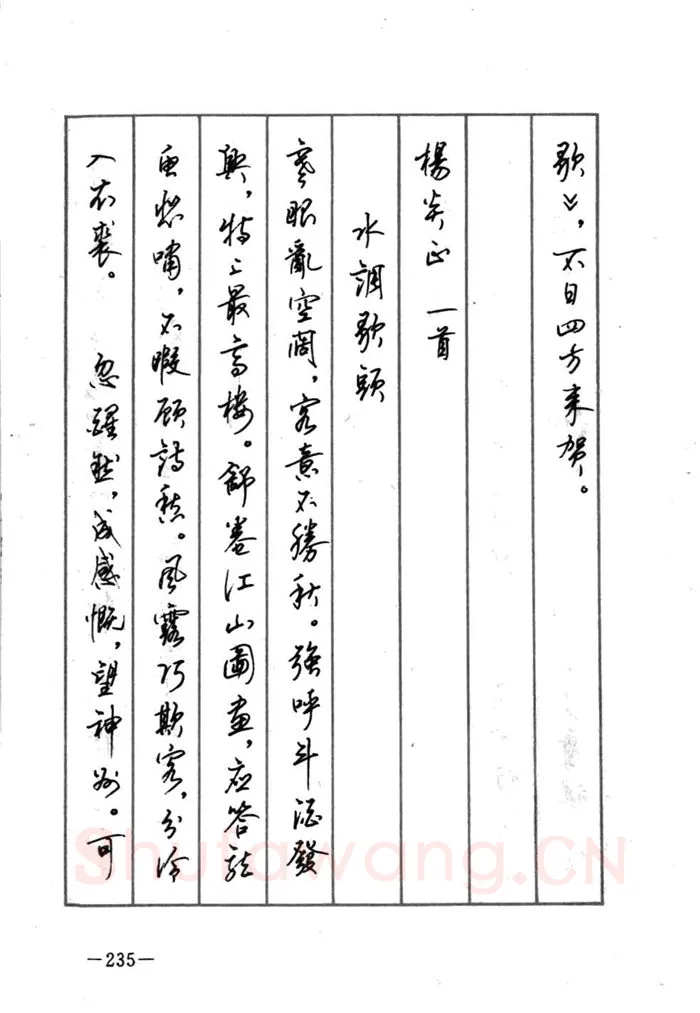 歌》,不日四方来賀。
楊炎正 一首
水調歌頭
寒眼亂空闊,客意不勝秋。強呼斗酒發
興,特上最高樓。舒卷江山圖畫,應答龍
魚悲嘯,不暇顧詩愁。風露巧欺客,分冷
入衣裘。 忽醒然,成感慨,望神州。可
—235—
Shufawang.CN